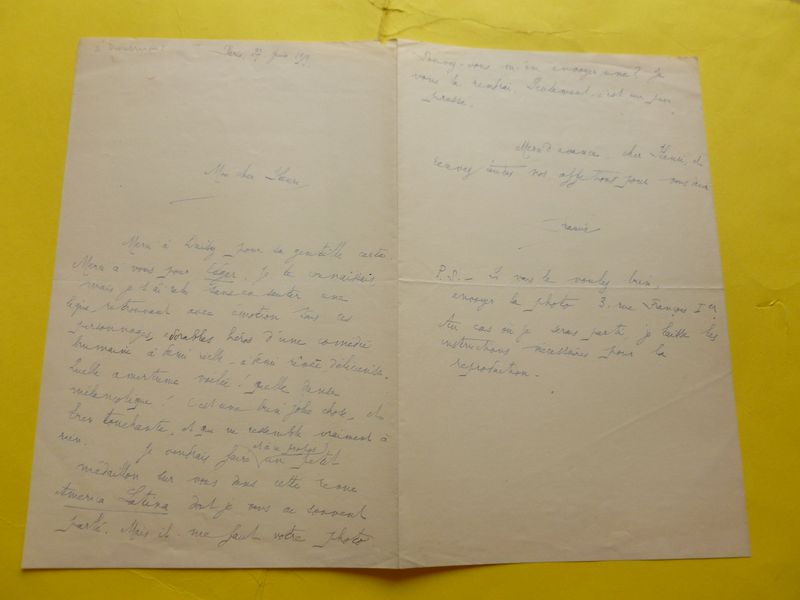 Paris, 27 juin
Mon cher Henri
Merci à Daisy pour sa gentille carte
Merci à vous pour Edgar. Je le connaissais
mais je l'ai relu sans en sauter une
ligne, retrouvant avec émotion tous ces
personnages, adorables héros d'une comédie
humaine à demi réelle - à demi rêvée délicieuse.
Quelle amertume voilée! quelle
mélancolique! C'est une bien jolie chose, et
très touchante, et qui ne ressemble vraiment à
rien. Je voudrais faire un petit
médaillon sur vous dans cette revue
America Latina dont je vous ai souvent
parlé. Mais il me faut votre photo
Pouvez-vous m'en envoyer une? Je
vous la rendrai. Seulement, c'est un peu
pressé.
Merci d'avance, cher Henri, et
toutes nos affections pour vous deux
Francis
P.S. - Si vous le voulez bien,
envoyez la photo 3, rue François Ier
Au cas où je serais parti je laisse les
instructions nécessaires pour la
reproduction -